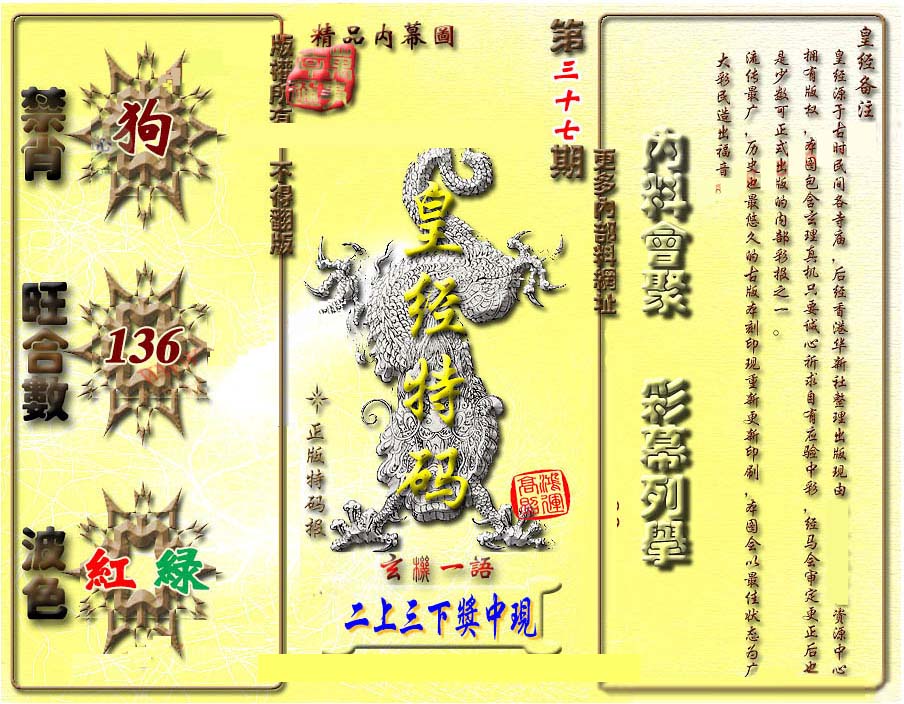 精品内幕圖
第三十七期
版權所有
不得翻版
更多內部料網址
禁肖
狗
旺合數
136
波色
紅 綠
皇经特码
正版特码报
鴻運高照
玄機一語
二上三下獎中現
內料會聚
彩幕列舉
皇经备注
皇经源于古时民间各寺庙，后经香港华新社整理出版现由 资源中心
拥有版权，本图包含玄理真机只要诚心祈求自有应验中彩，经马会审定更正后也
是少数可正式出版的内部彩报之一。
流传最广，历史也最悠久的古版本刻印现重新更新印刷，本图会以最佳状态为广
大彩民造出福音